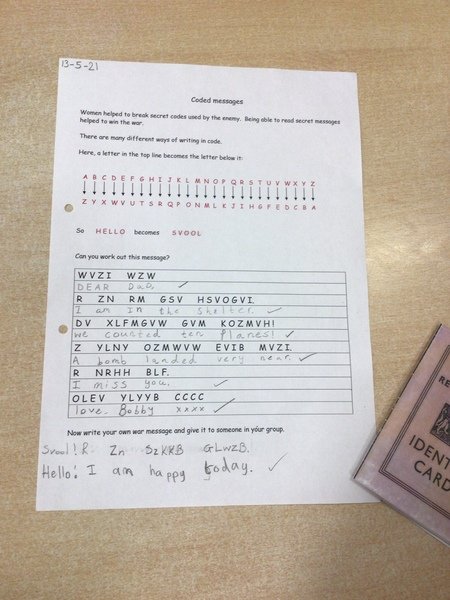 13-5-21
Coded messages
Women helped to break secret codes used by the enemy. Being able to read secret messages
helped to win the war.
There are many different ways of writing in code.
Here, a letter in the top line becomes the letter below it:
A B C D E F G H I J K L M N O P Q R S T U V W X Y Z
Z Y X W V U T S R Q P O N M L K J I H G F E D C B A
So HELLO becomes SVOOL
Can you work out this message?
WVZI WZW
DEAR Dad,
R ZN RM GSV HSVOGVI.
I am In the shelter.
DV XLFMGVW GVM KOZMVH!
we counted ten planes!
Z YLNY OZMWVW EVIB MVZI.
A bomb landed very near.
R NRHH BLF.
I miss you.
OLEV YLYYB CCCC
love. Bobby xxxx
Now write your own war message and give it to someone in your group.
Svool! R Zn SZKKB GLWZB.
Hello! I am happy today.
RE
IDENT
CARD